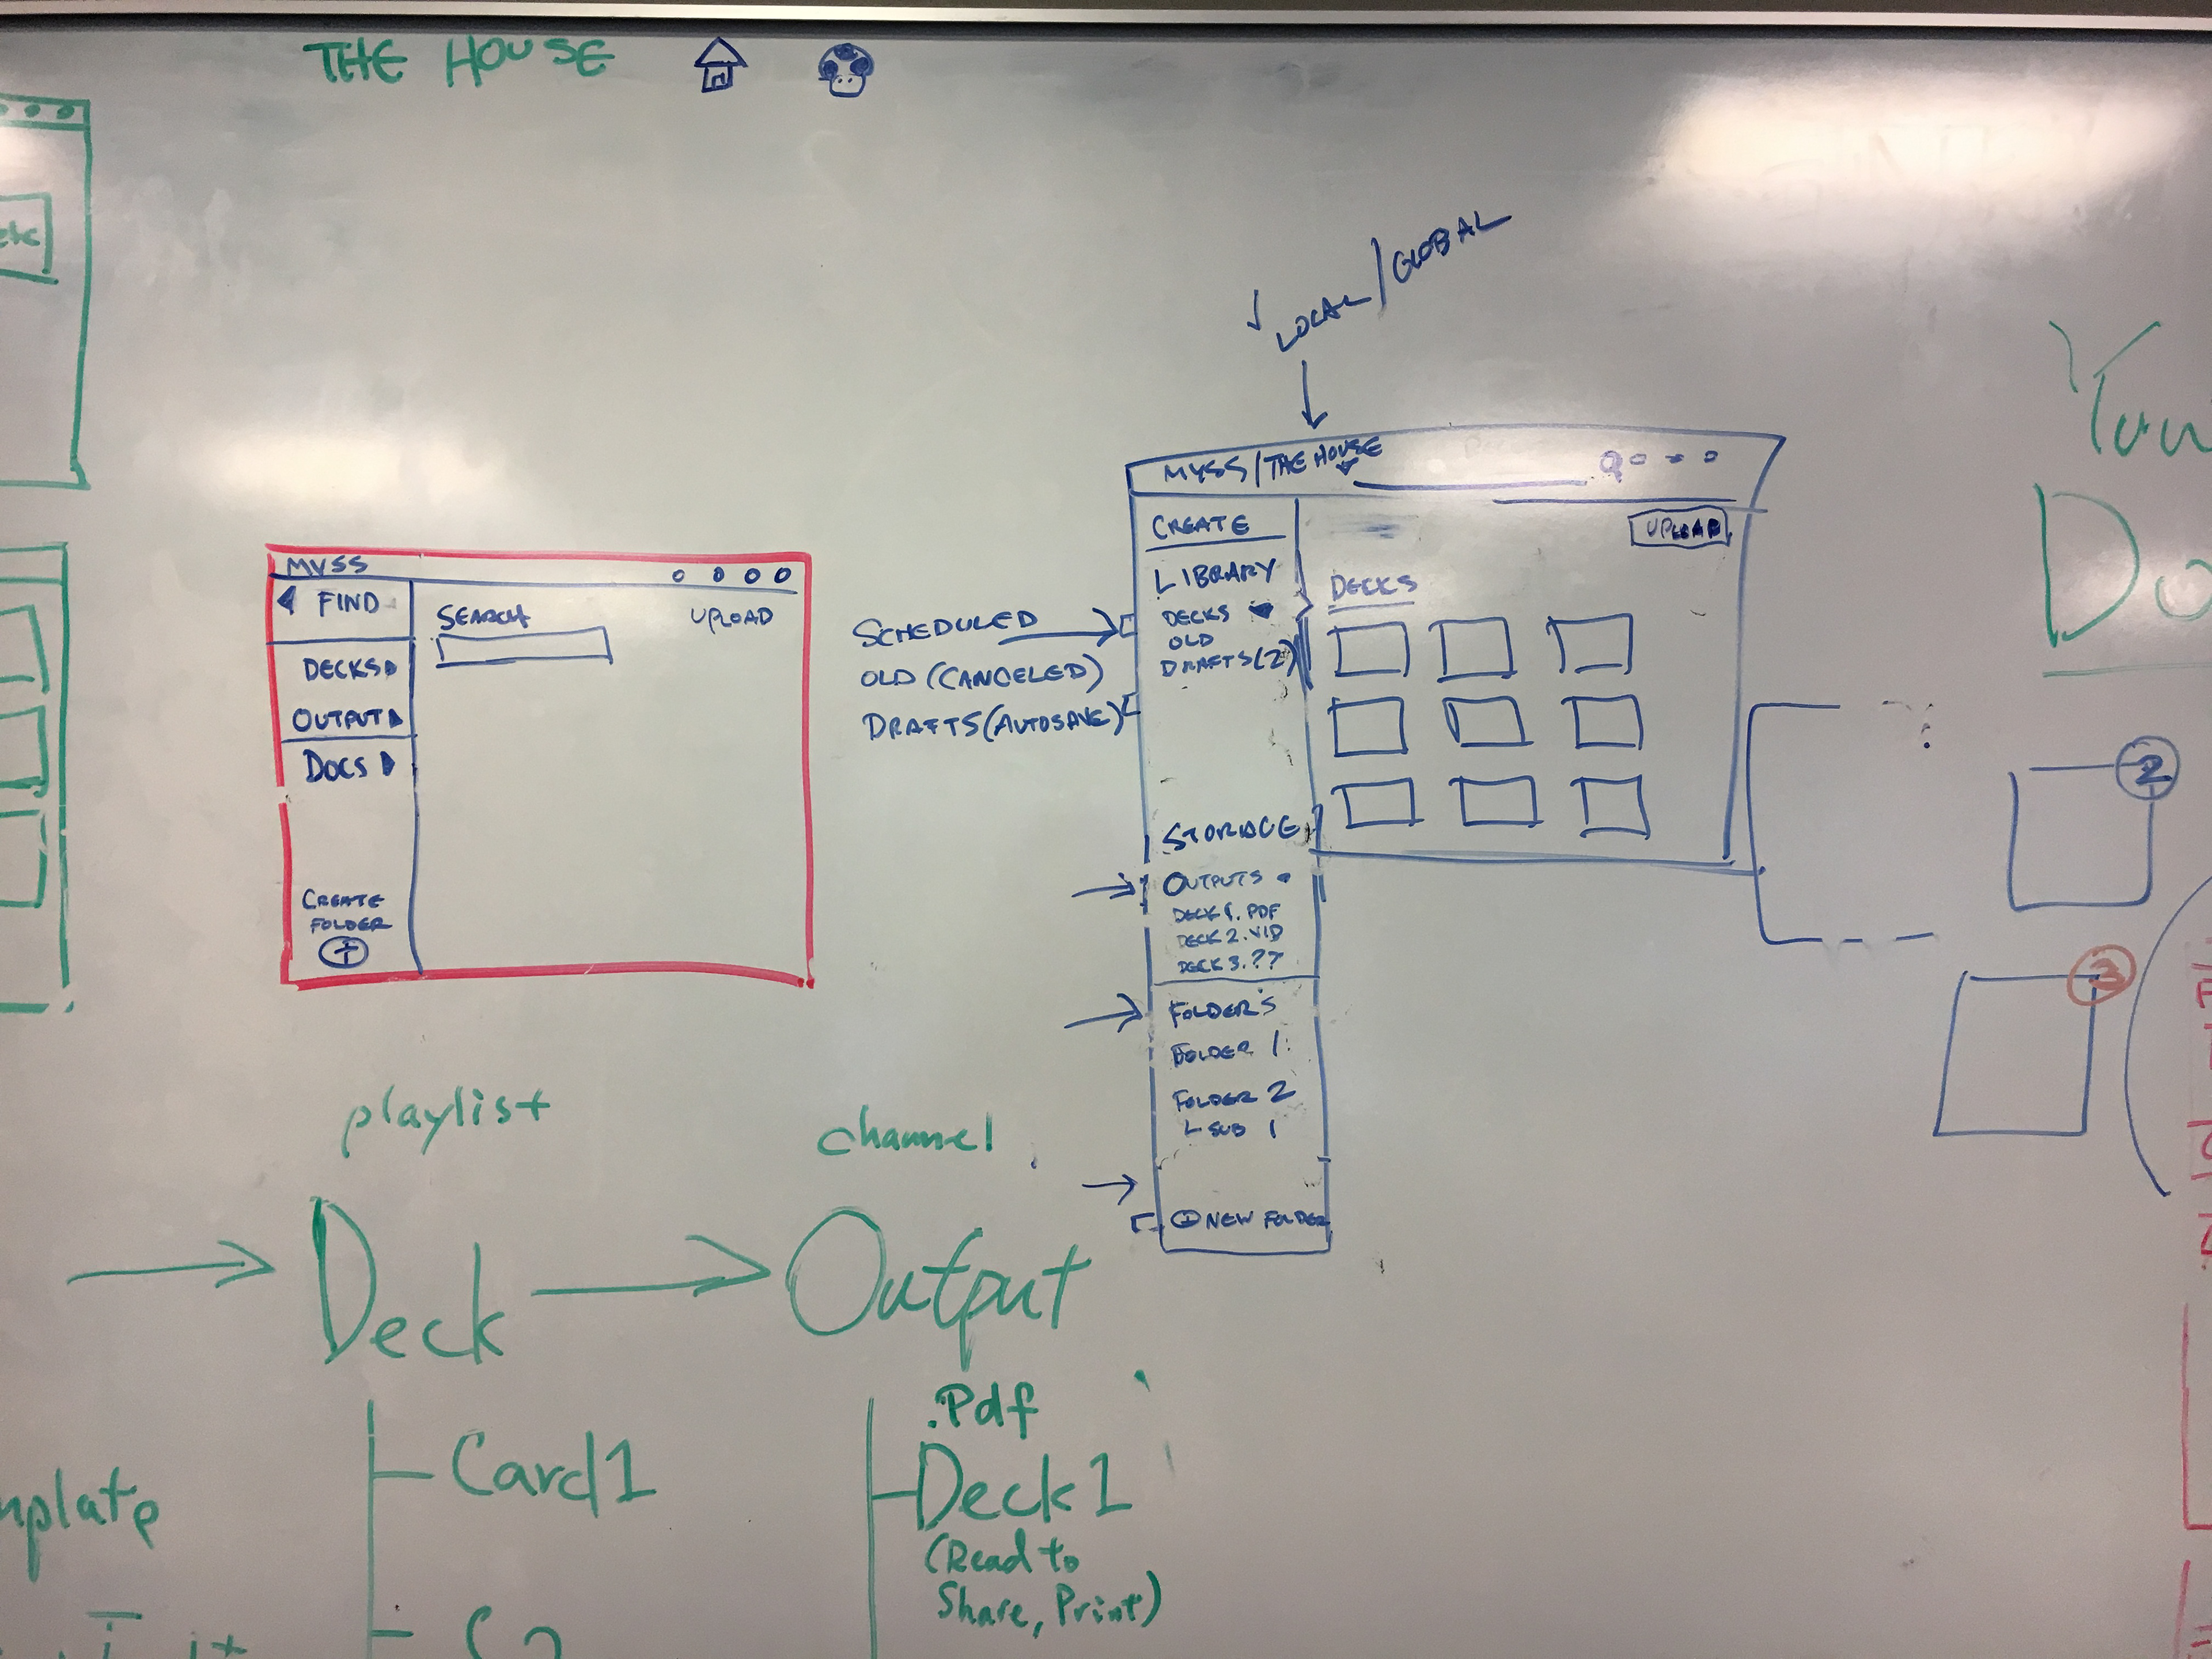 THE HOUSE
LOCAL/GLOBAL
MYSS/THE HOUSE
CREATE
UPLOAD
LIBRARY
DECKS
OLD
DRAFTS(2)
DECKS
STORAGE
OUTPUTS
DECK 1.PDF
DECK 2.VID
DECK 3.??
FOLDER'S
FOLDER 1
FOLDER 2
SUB 1
+ NEW FOLDER
SCHEDULED
OLD (CANCELED)
DRAFTS (AUTOSAVE)
MYSS
FIND
SEARCH
UPLOAD
DECKS
OUTPUT
DOCS
CREATE
FOLDER
+
2
3
playlist
channel
Deck
Output
Card1
.Pdf
Deck1
(Read to
Share, Print)